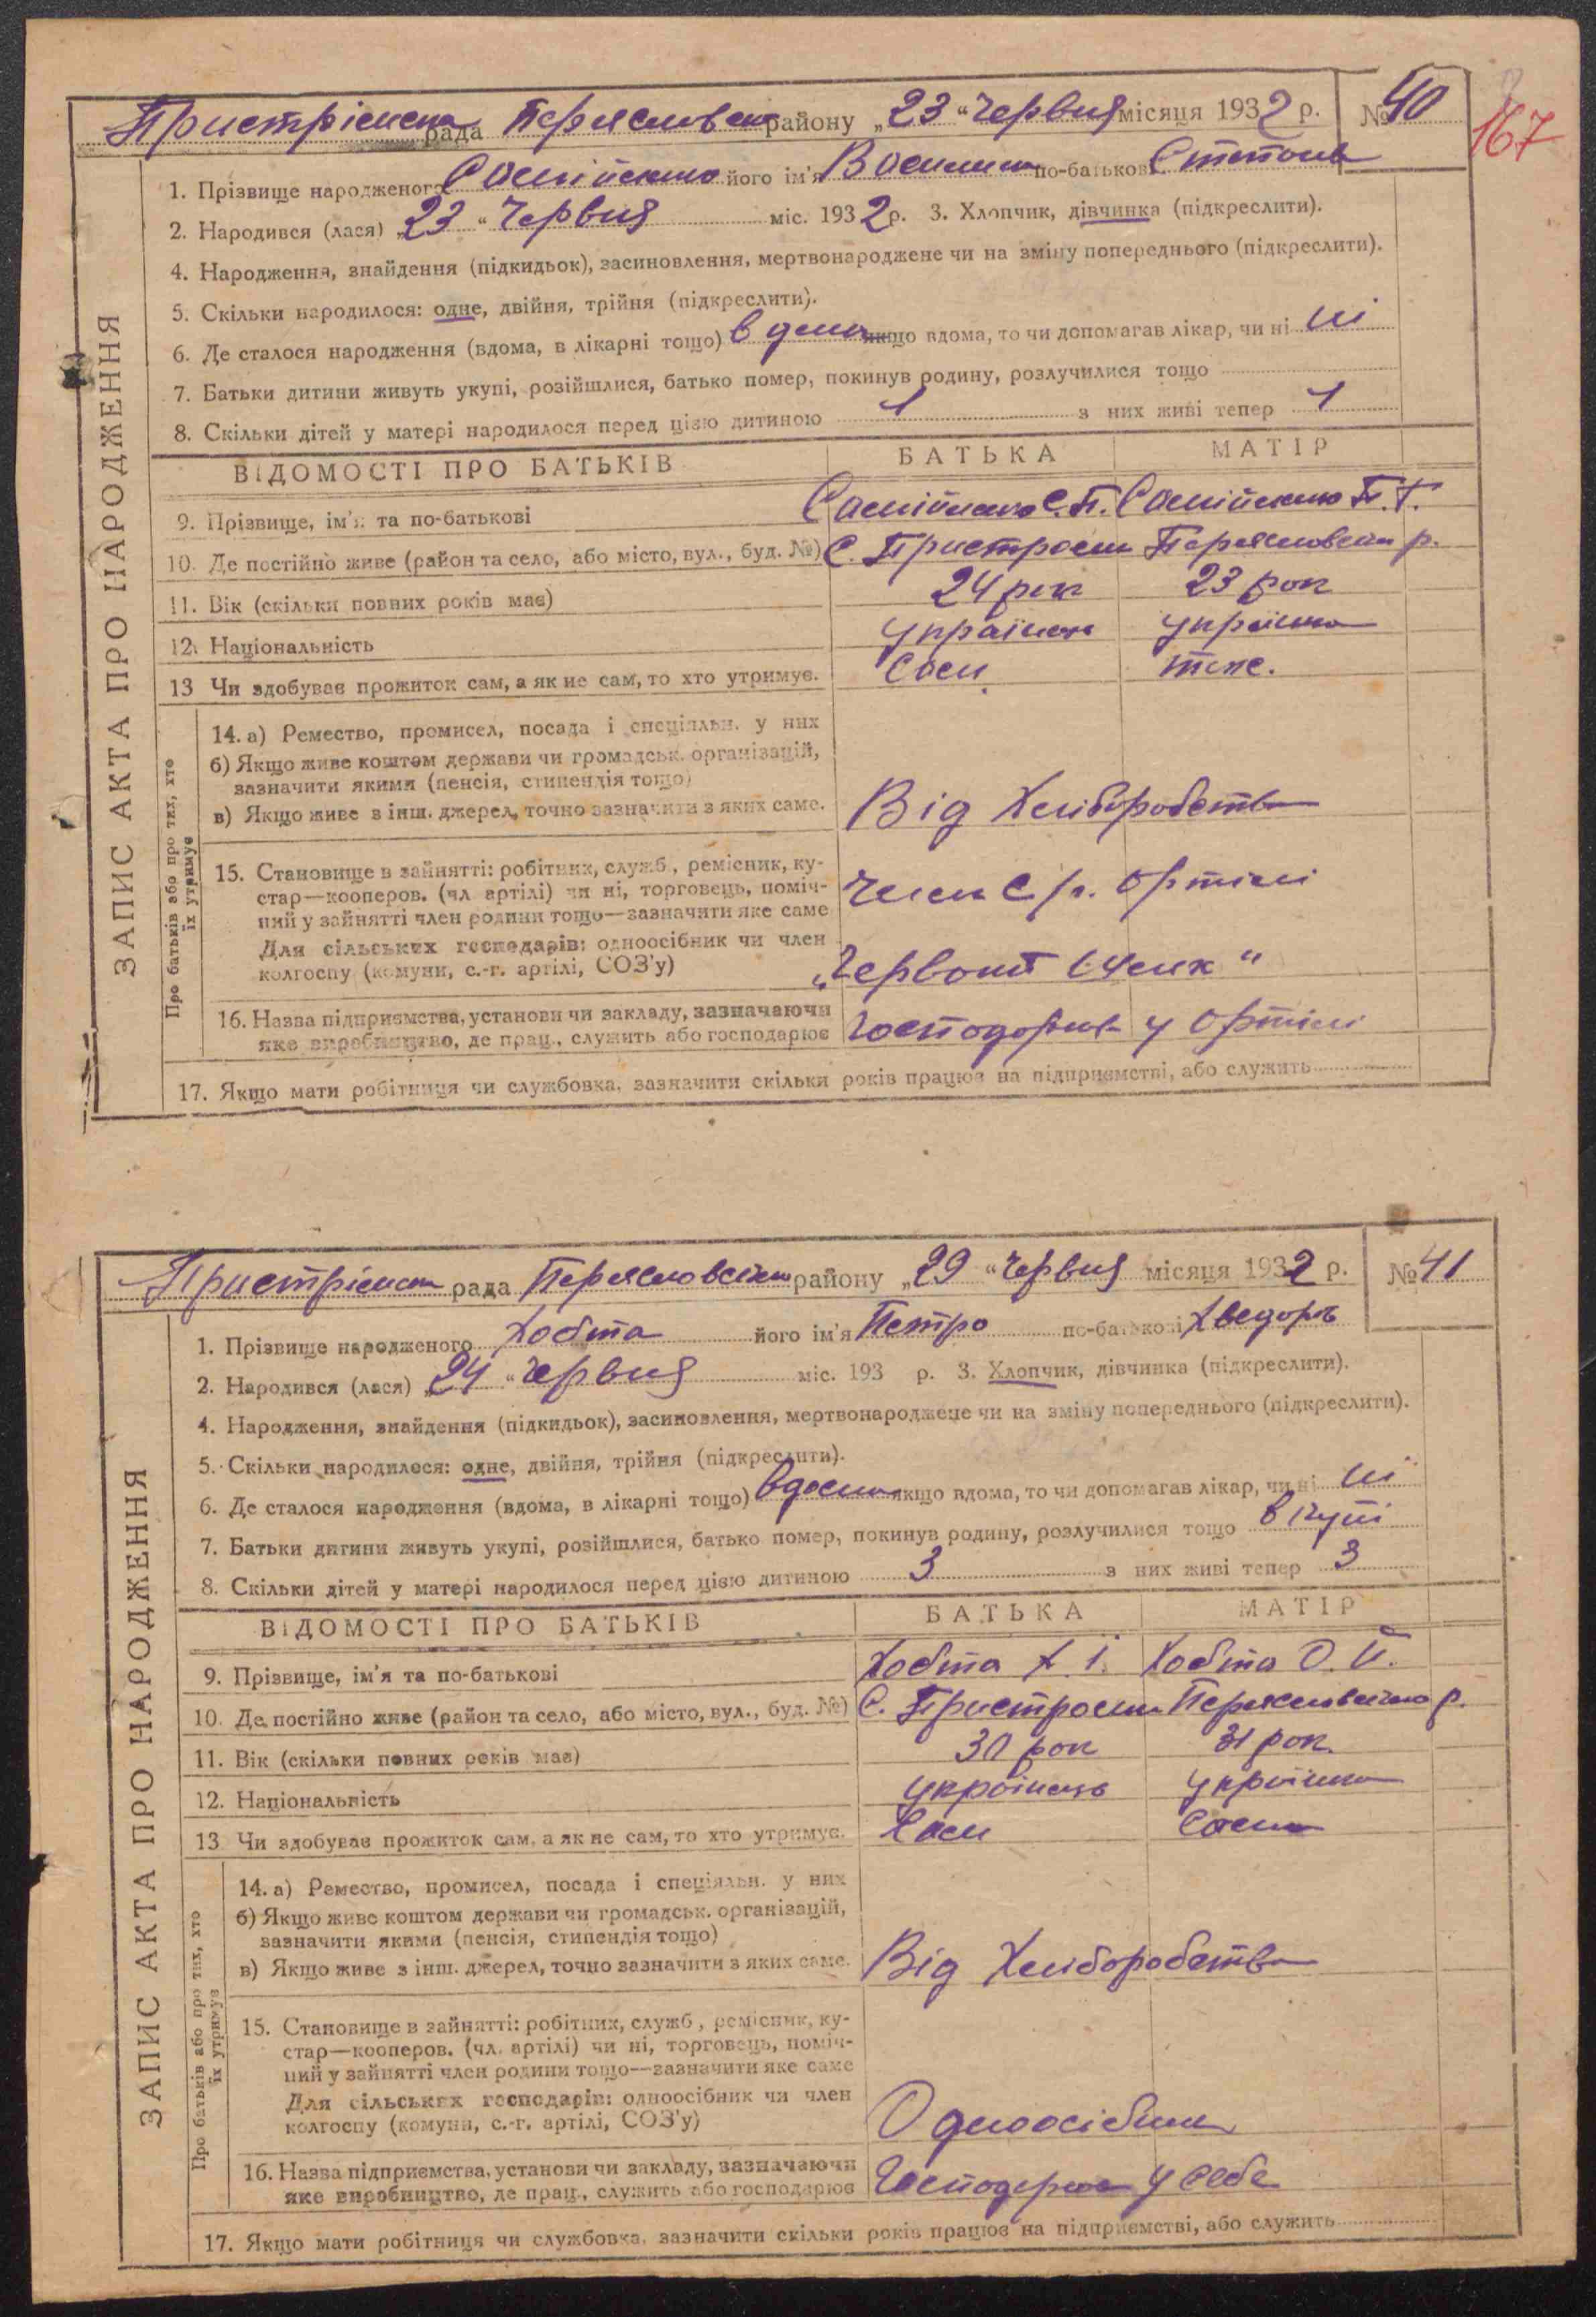 Пристрімська рада Переяславськ району „23“ Червня місяця 1932 р. № 40
167
ЗАПИС АКТА ПРО НАРОДЖЕННЯ
1. Прізвище народженого Самійленко його ім'я по-батькові Степанів
2. Народився (лася) „23“ Червня міс. 1932 р. 3. Хлопчик, дівчинка (підкреслити).
4. Народження, знайдення (підкидьок), засиновлення, мертвонароджене чи на зміну попереднього (підкреслити).
5. Скільки народилося: одне, двійня, трійня (підкреслити).
6. Де сталося народження (вдома, в лікарні тощо) вдома якщо вдома, то чи допомагав лікар, чи ні ні
7. Батьки дитини живуть укупі, розійшлися, батько помер, покинув родину, розлучилися тощо
8. Скільки дітей у матері народилося перед цією дитиною 1 з них живі тепер 1
ВІДОМОСТІ ПРО БАТЬКІВ БАТЬКА МАТІР
9. Прізвище, ім'я та по-батькові Самійленко С. П. Самійленко П. Г.
10. Де постійно живе (район та село, або місто, вул., буд. №) С. Пристроми Переяславськ р.
11. Вік (скільки повних років має) 24 рок 23 рок
12. Національність українець українка
13 Чи здобуває прожиток сам, а як не сам, то хто утримує. Сам теж.
Про батьків або про тих, хто їх утримує
14. а) Ремество, промисел, посада і спеціяльн. у них
б) Якщо живе коштом держави чи громадськ. організацій,
зазначити якими (пенсія, стипендія тощо)
в) Якщо живе з інш. джерел, точно зазначити з яких саме. Від Хліборобства
15. Становище в зайнятті: робітник, служб., ремісник, ку-
стар—кооперов. (чл. артілі) чи ні, торговець, поміч- Член С/г. Артілі
ний у зайнятті член родини тощо—зазначити яке саме
Для сільських господарів: одноосібник чи член
колгоспу (комуни, с.-г. артілі, СОЗ'у)
16. Назва підприємства, установи чи закладу, зазначаючи
яке виробництво, де прац., служить або господарює Господарює у Артілі
17. Якщо мати робітниця чи службовка, зазначити скільки років працює на підприємстві, або служить
Пристрімськ рада Переяславськ району „29“ Червня місяця 1932 р. № 41
ЗАПИС АКТА ПРО НАРОДЖЕННЯ
1. Прізвище народженого Хобта його ім'я Петро по-батькові Хведорів
2. Народився (лася) „24“ Червня міс. 193 р. 3. Хлопчик, дівчинка (підкреслити).
4. Народження, знайдення (підкидьок), засиновлення, мертвонароджене чи на зміну попереднього (підкреслити).
5. Скільки народилося: одне, двійня, трійня (підкреслити).
6. Де сталося народження (вдома, в лікарні тощо) вдома якщо вдома, то чи допомагав лікар, чи ні ні
7. Батьки дитини живуть укупі, розійшлися, батько помер, покинув родину, розлучилися тощо вкупі
8. Скільки дітей у матері народилося перед цією дитиною 3 з них живі тепер 3
ВІДОМОСТІ ПРО БАТЬКІВ БАТЬКА МАТІР
9. Прізвище, ім'я та по-батькові Хобта Х. І. Хобта О. Й.
10. Де постійно живе (район та село, або місто, вул., буд. №) С. Пристроми Переяславського р.
11. Вік (скільки повних років має) 30 рок 31 рок.
12. Національність українець українка
13 Чи здобуває прожиток сам, а як не сам, то хто утримує. Сам Сама
Про батьків або про тих, хто їх утримує
14. а) Ремество, промисел, посада і спеціяльн. у них
б) Якщо живе коштом держави чи громадськ. організацій,
зазначити якими (пенсія, стипендія тощо)
в) Якщо живе з інш. джерел, точно зазначити з яких саме. Від Хліборобства
15. Становище в зайнятті: робітник, служб., ремісник, ку-
стар—кооперов. (чл. артілі) чи ні, торговець, поміч-
ний у зайнятті член родини тощо—зазначити яке саме
Для сільських господарів: одноосібник чи член
колгоспу (комуни, с.-г. артілі, СОЗ'у) Одноосібник
16. Назва підприємства, установи чи закладу, зазначаючи
яке виробництво, де прац., служить або господарює Господарює у себе
17. Якщо мати робітниця чи службовка, зазначити скільки років працює на підприємстві, або служить